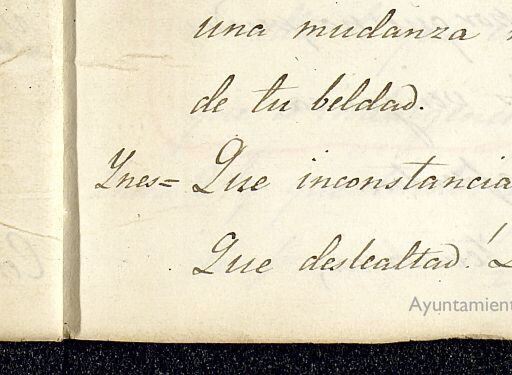 una mudanza
de tu beldad.
Ynes= Que inconstancia
Que deslealtad!
Ayuntamient